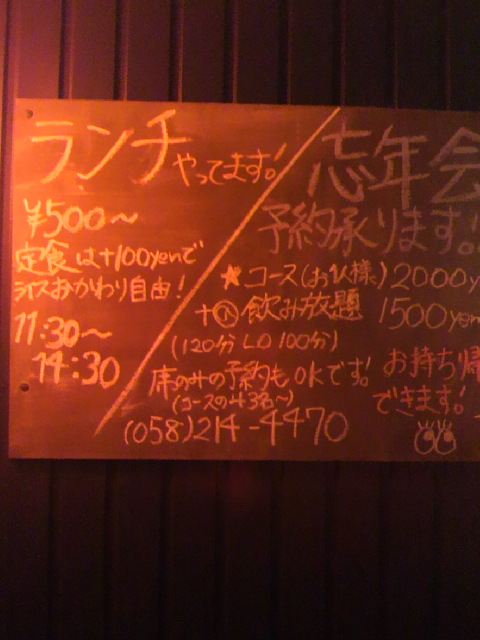 ランチやってます!
¥500～
定食は+100yenで
ライスおかわり自由!
11:30～
14:30
忘年会
予約承ります!
★コース(お1人様)2000y
+ 飲み放題 1500yen
(120分 LO 100分)
席のみの予約もOKです!
(コースのみ3名～)
(058)214-4470
お持ち帰
できます!